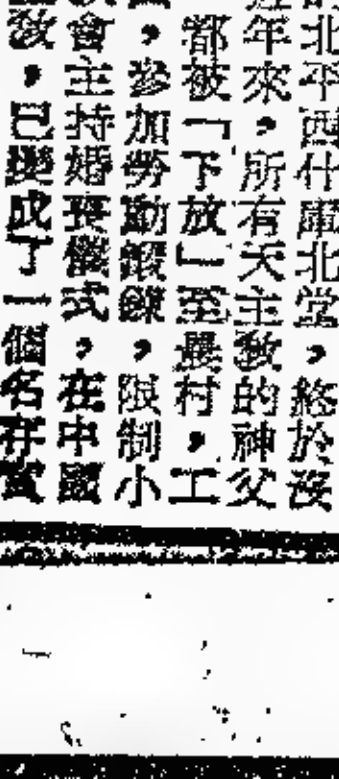 北平西什庫北堂，終於沒
年來，所有天主教的神父
都被「下放」至農村，工
，參加勞動鍛鍊，限制小
會主持婚喪儀式，在中國
教，已變成了一個名存實